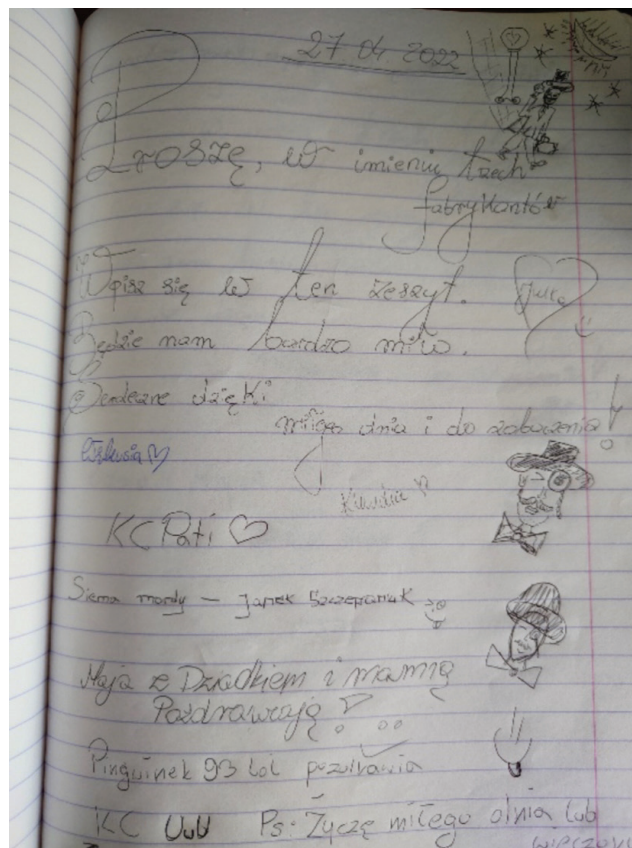 27 04. 2022
Proszę, w imieniu trzech
fabrykantów
Wpisz się w ten zeszyt.
Będzie nam bardzo miło.
Serdeczne dzięki
miłego dnia i do zobaczenia!
KC Pati ♡
Siema mordy - Janek Szczepaniak
Maja z Dziadkiem i mamią
Pozdrawiają
Pinguinek 93 lol pozdrawia
KC UwU Ps: Życzę miłego dnia lub